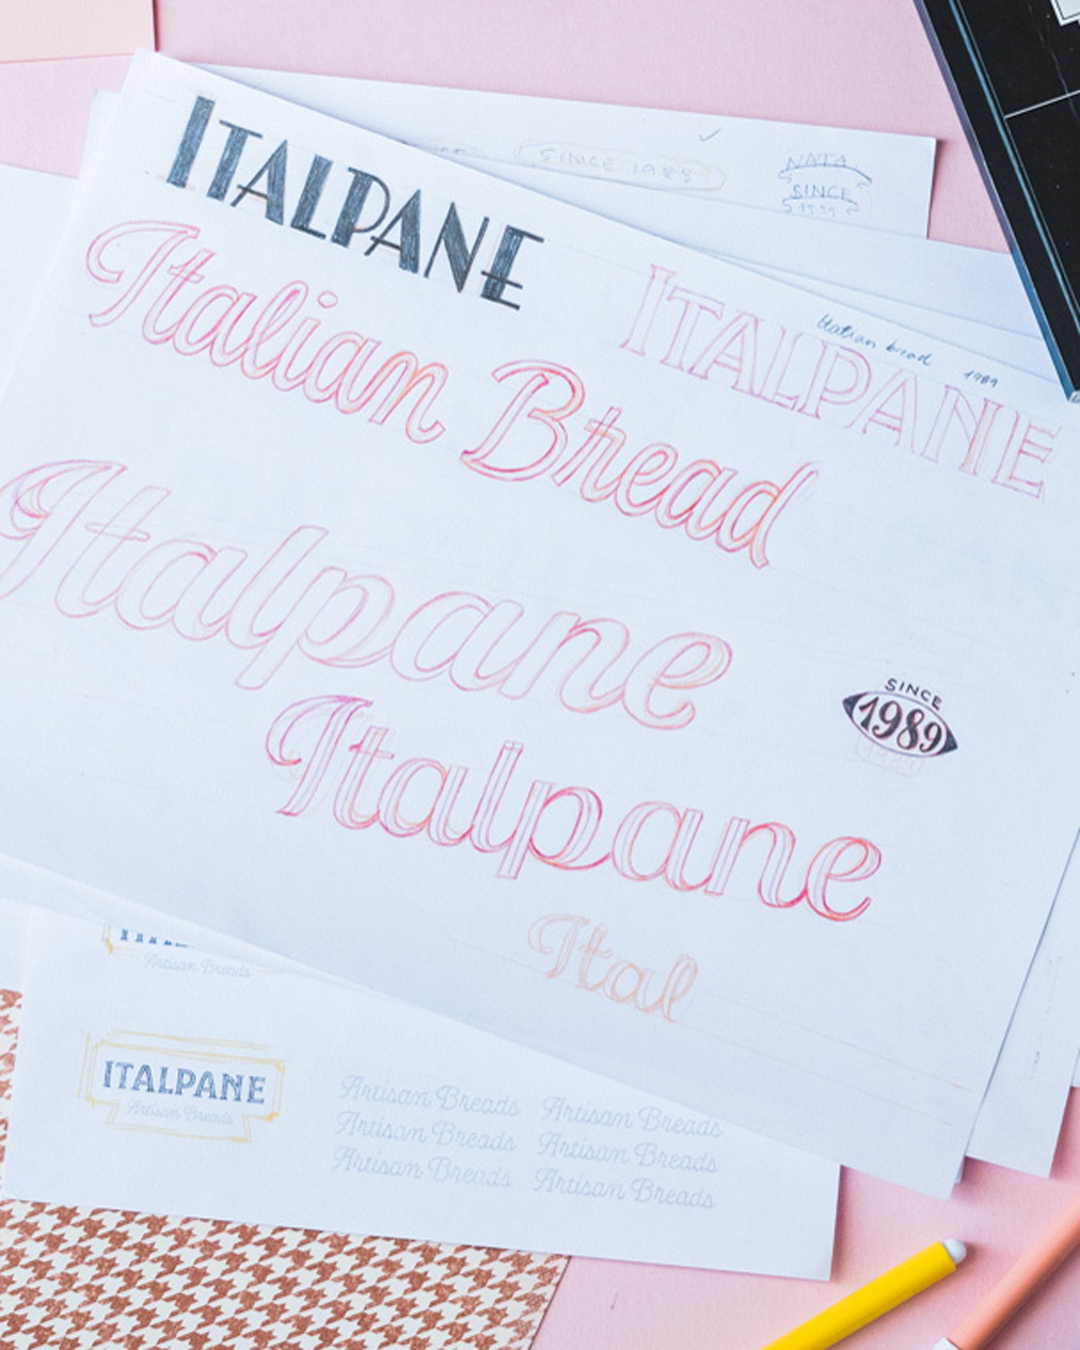 SINCE 1989
NATA
SINCE
ITALPANE
Italian Bread
ITALPANE
Italian bread 1989
Italpane
SINCE
1989
Italpane
Ital
Artisan Breads
ITALPANE
Artisan Breads
Artisan Breads Artisan Breads
Artisan Breads Artisan Breads
Artisan Breads Artisan Breads